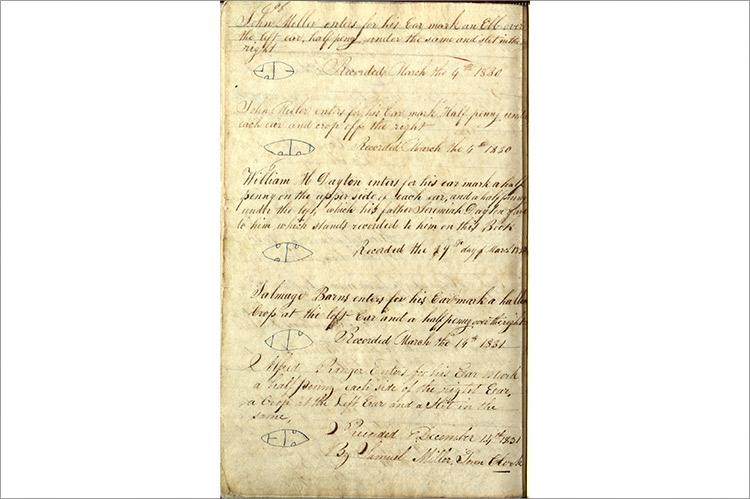 John Miller enters for his Ear mark an Ell over
the left ear, half peny under the same and slit in the
right
Recorded March the 4th 1830
John enters for his Ear mark Half penny under
each ear and crop off the right
Recorded March the 4th 1830
William H Dayton enters for his ear mark a half
penny on the upper side of each ear, and a half penny
under the left, which his father Jeremiah Dayton gave
to him which stands recorded to him on this Book
Recorded the day of March
Talmage Barns enters for his Ear mark a hallow
Crop at the left Ear and a half penny over the right
Recorded March the 14th 1831
Alfred Ranger Enters for his Ear Mark
a half penny each side of the right Ear,
a Crop at the Left Ear and a slit in the
same,
Recorded December 14th 1831
By Samuel Miller, Town Clerk